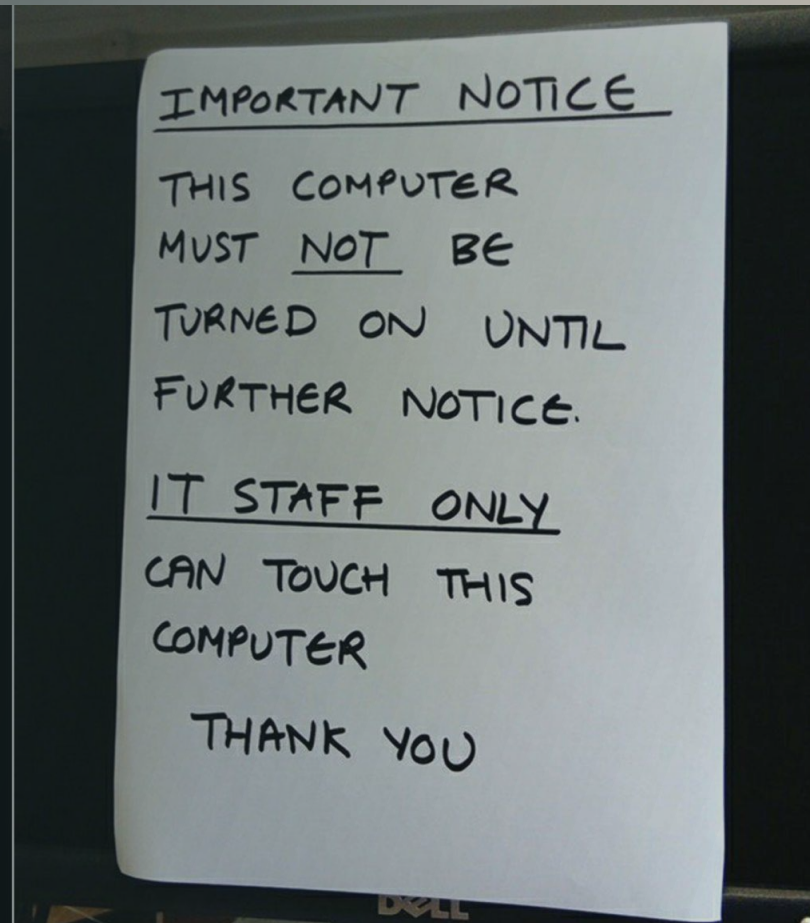 IMPORTANT NOTICE
THIS COMPUTER
MUST NOT BE
TURNED ON UNTIL
FURTHER NOTICE.
IT STAFF ONLY
CAN TOUCH THIS
COMPUTER
THANK YOU
DELL